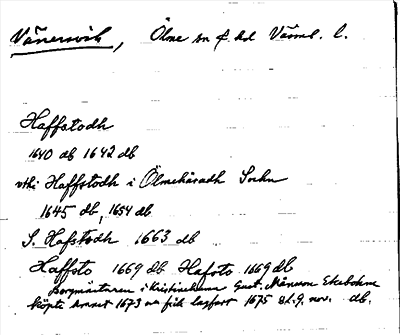 Vänersvik, Ölme sn o. hd Värml. l.
Haffstodh
1640 db 1642 db
uthi Haffstodh i Ölmehäradh Sochn
1645 db, 1654 db
S. Hafstodh 1663 db
Haffsto 1669 db Hafsto 1669 db
borgmästaren i Kristinehamn Gust. Månsson Ekebohm
köpte hemmet 1673 och fick lagfart 1675 d. 9. nov. db.